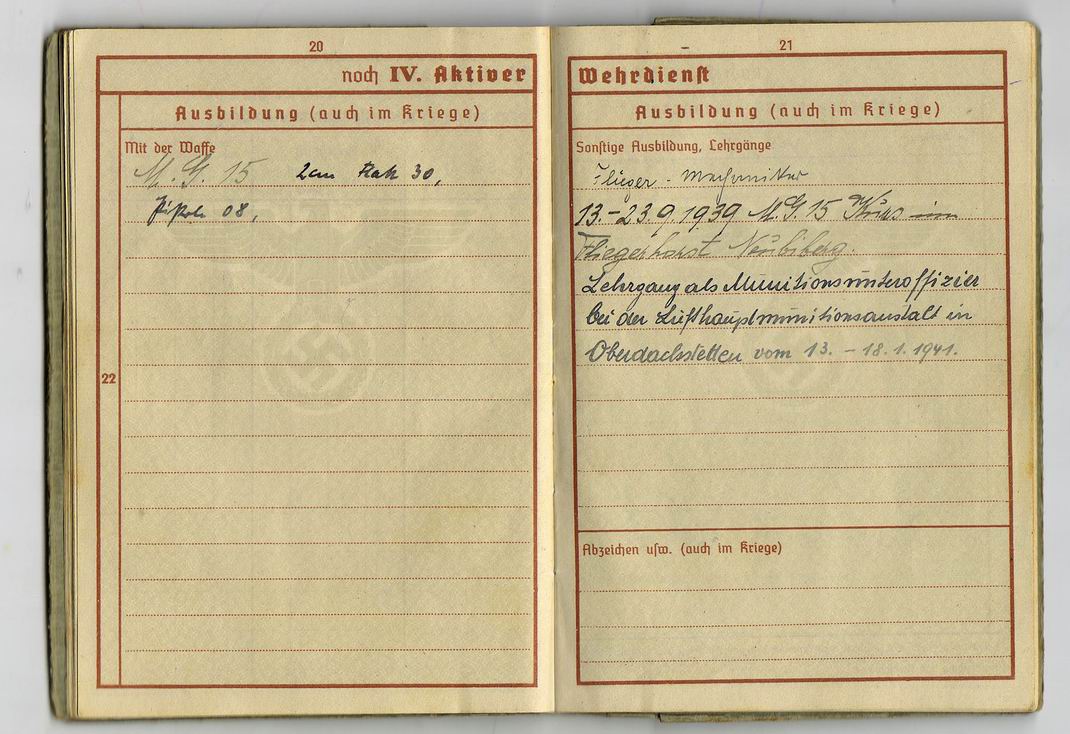 20
noch IV. Aktiver
Ausbildung (auch im Kriege)
Mit der Waffe
M. G. 15 2cm Flak 30,
Pistole 08,
22
21
Wehrdienst
Ausbildung (auch im Kriege)
Sonstige Ausbildung, Lehrgänge
Flieger - Mechaniker
13.-23.9.1939 M.G. 15 Kurs im
Fliegerhorst Neubiberg.
Lehrgang als Munitionsunteroffizier
bei der Lufthauptmunitionsanstalt in
Oberdachstetten vom 13. - 18.1.1941.
Abzeichen usw. (auch im Kriege)